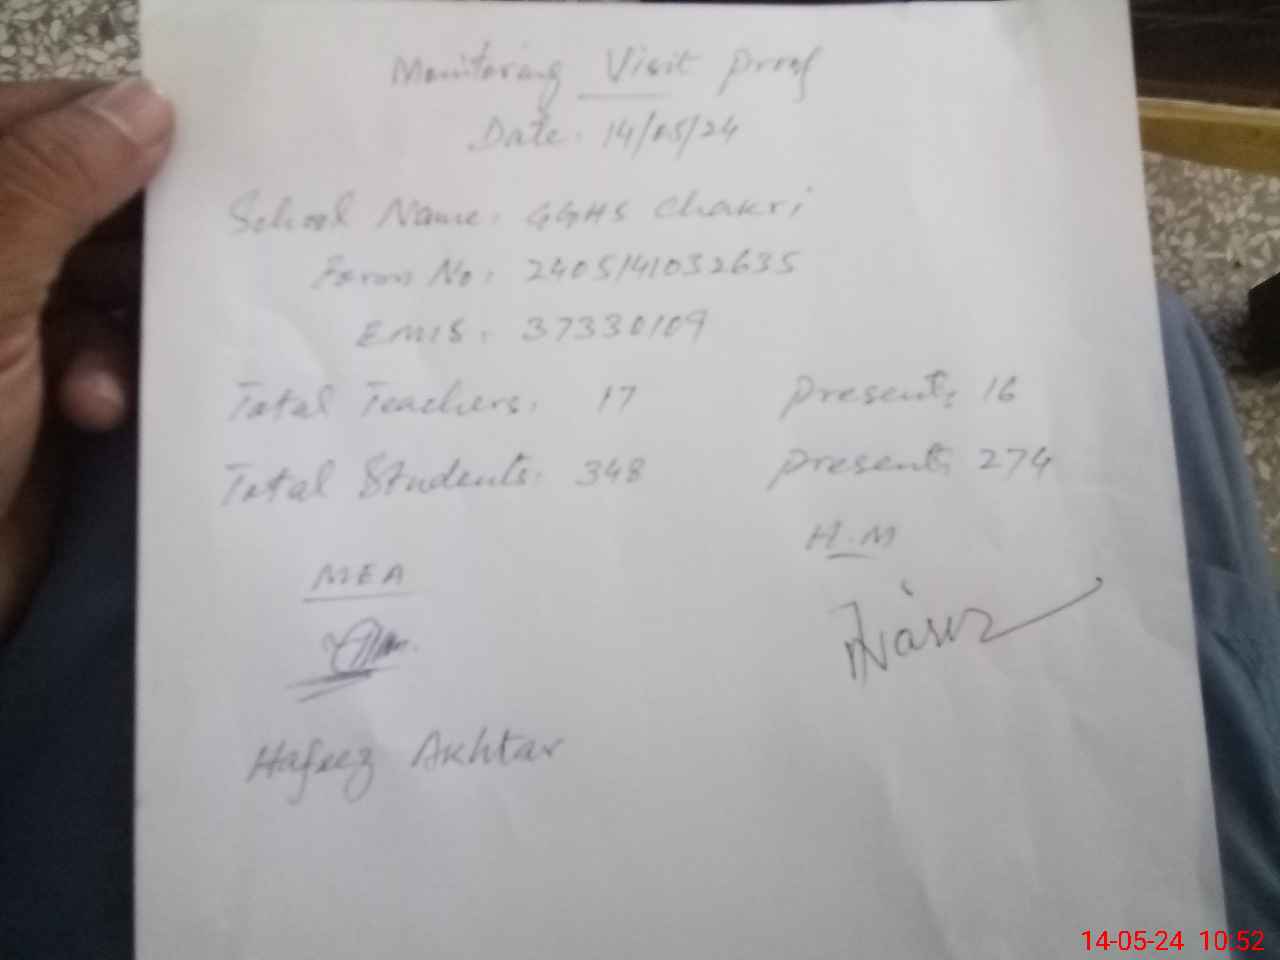 Monitoring Visit Proof
Date: 14/05/24
School Name: GGHS Chakri
Form No: 2405141032635
EMIS: 37330109
Total Teachers: 17 Present: 16
Total Students: 348 Present: 274
H.M
MEA
Hafeez Akhtar
14-05-24 10:52